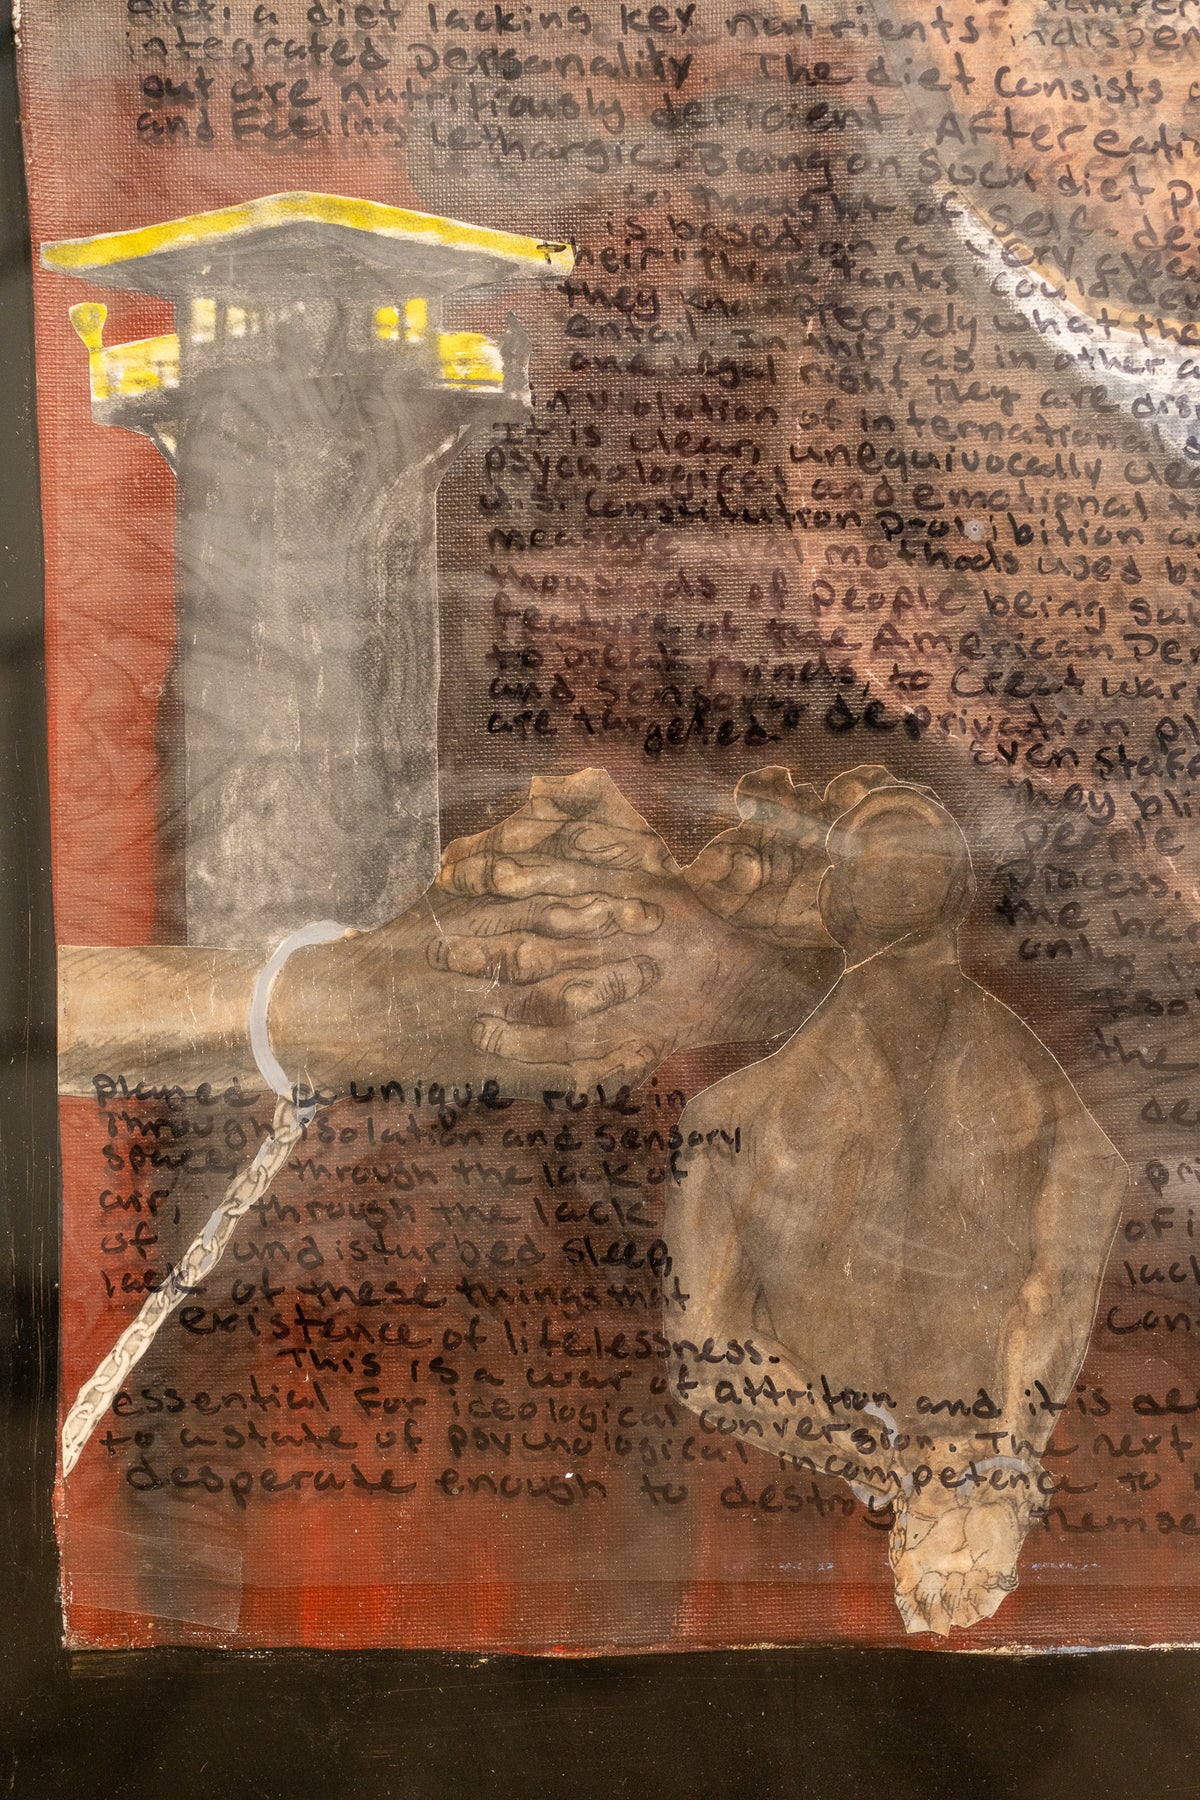 diet, a diet lacking key nutrients indispen
integrated personality. The diet consists
but are nutritiously deficient. After eatin
and Feeling lethargic. Being on Such diet
thought of self-de
is based on a very clea
their "think tanks" could dev
they know precisely what the
entail. In this, as in other a
and legal right they are dis
in violation of international
It is clear, unequivocally clea
psychological and emotional
U.S. Constitution prohibition
methods used by
thousands of people being su
feature of the American Pe
to break minds, to Creat war
and sensory deprivation pl
are targeted.
Even staff
they bli
people
process.
the ha
only is
the
de
pri
played a unique role in
through isolation and sensory
space, through the lack of
air, through the lack
of i
of undisturbed sleep,
lack
lack of these things that
existence of lifelessness.
Con
This is a war of attrition and it is de
essential for ideological conversion. The next
to a state of psychological incompetence to
desperate enough to destroy themse